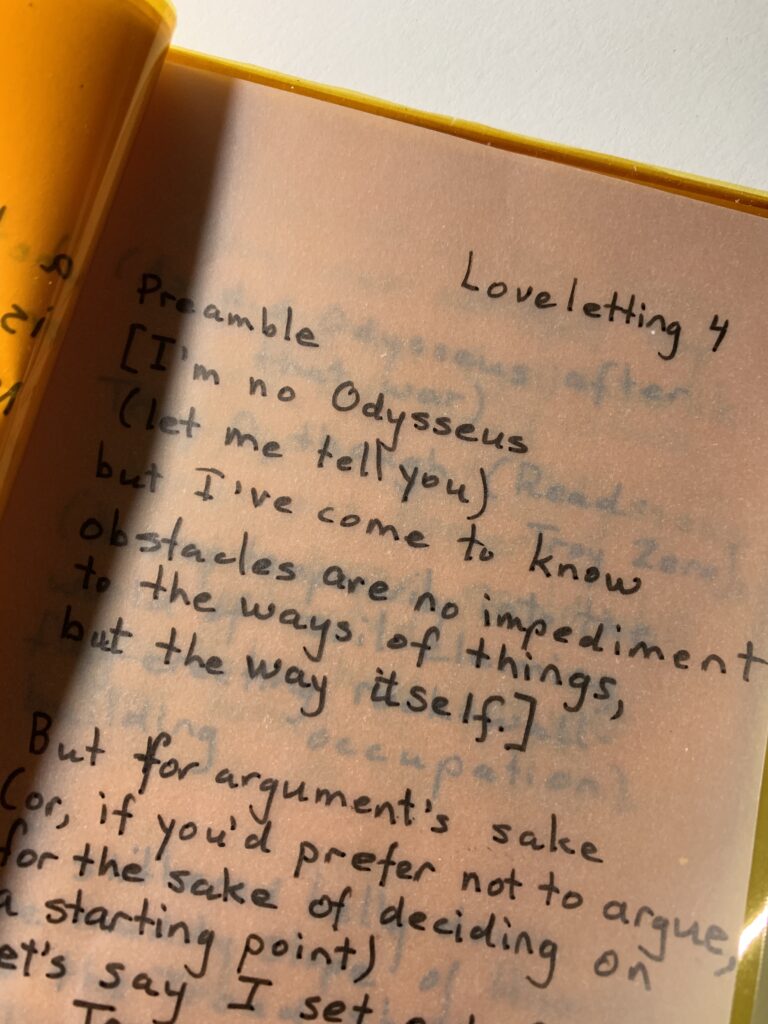 Loveletting 4
Preamble
[I'm no Odysseus
(let me tell you)
but I've come to know
obstacles are no impediment
to the ways of things,
but the way itself.]
But for argument's sake
(or, if you'd prefer not to argue,
for the sake of deciding on
a starting point)
let's say I set
Odysseus after
that war)
(Read
Troy Zone)
occupation)